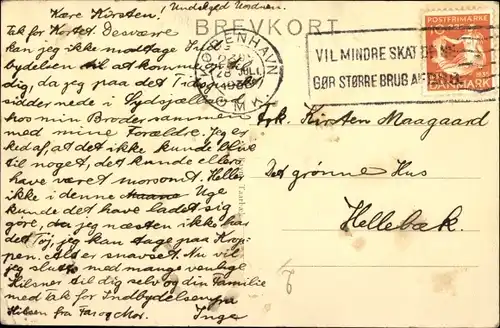 Kære Kirsten! (Undskyld Uordnen.
BREVKORT
Tak for Kortet. Desværre
kan jeg ikke modtage Ind-
bydelsen til at komme op til
dig, da jeg paa det Tidspunkt
sidder nede i Sydsjælland
hos min Broder sammen
med mine Forældre. Jeg er
ked af at det ikke kunde blive
til noget, det kunde ellers
have været morsomt. Heller
ikke i denne Uge
kunde det have ladet sig
gøre, da jeg næsten ikke har
det Tøj, jeg kan tage paa Krop-
pen. Alt er snavset. Nu vil
jeg slutte med mange venlige
Hilsner til dig selv og din Familie
med Tak for Indbydelsen fra
Inge
Hilsen fra Far og Mor.
KØBENHAVN
OMK.
VIL MINDRE SKAT DE HA'
GØR STØRRE BRUG AF
POSTFRIMÆRKE
DANMARK
Frk. Kirsten Maagaard
Det grønne Hus
Hellebæk.